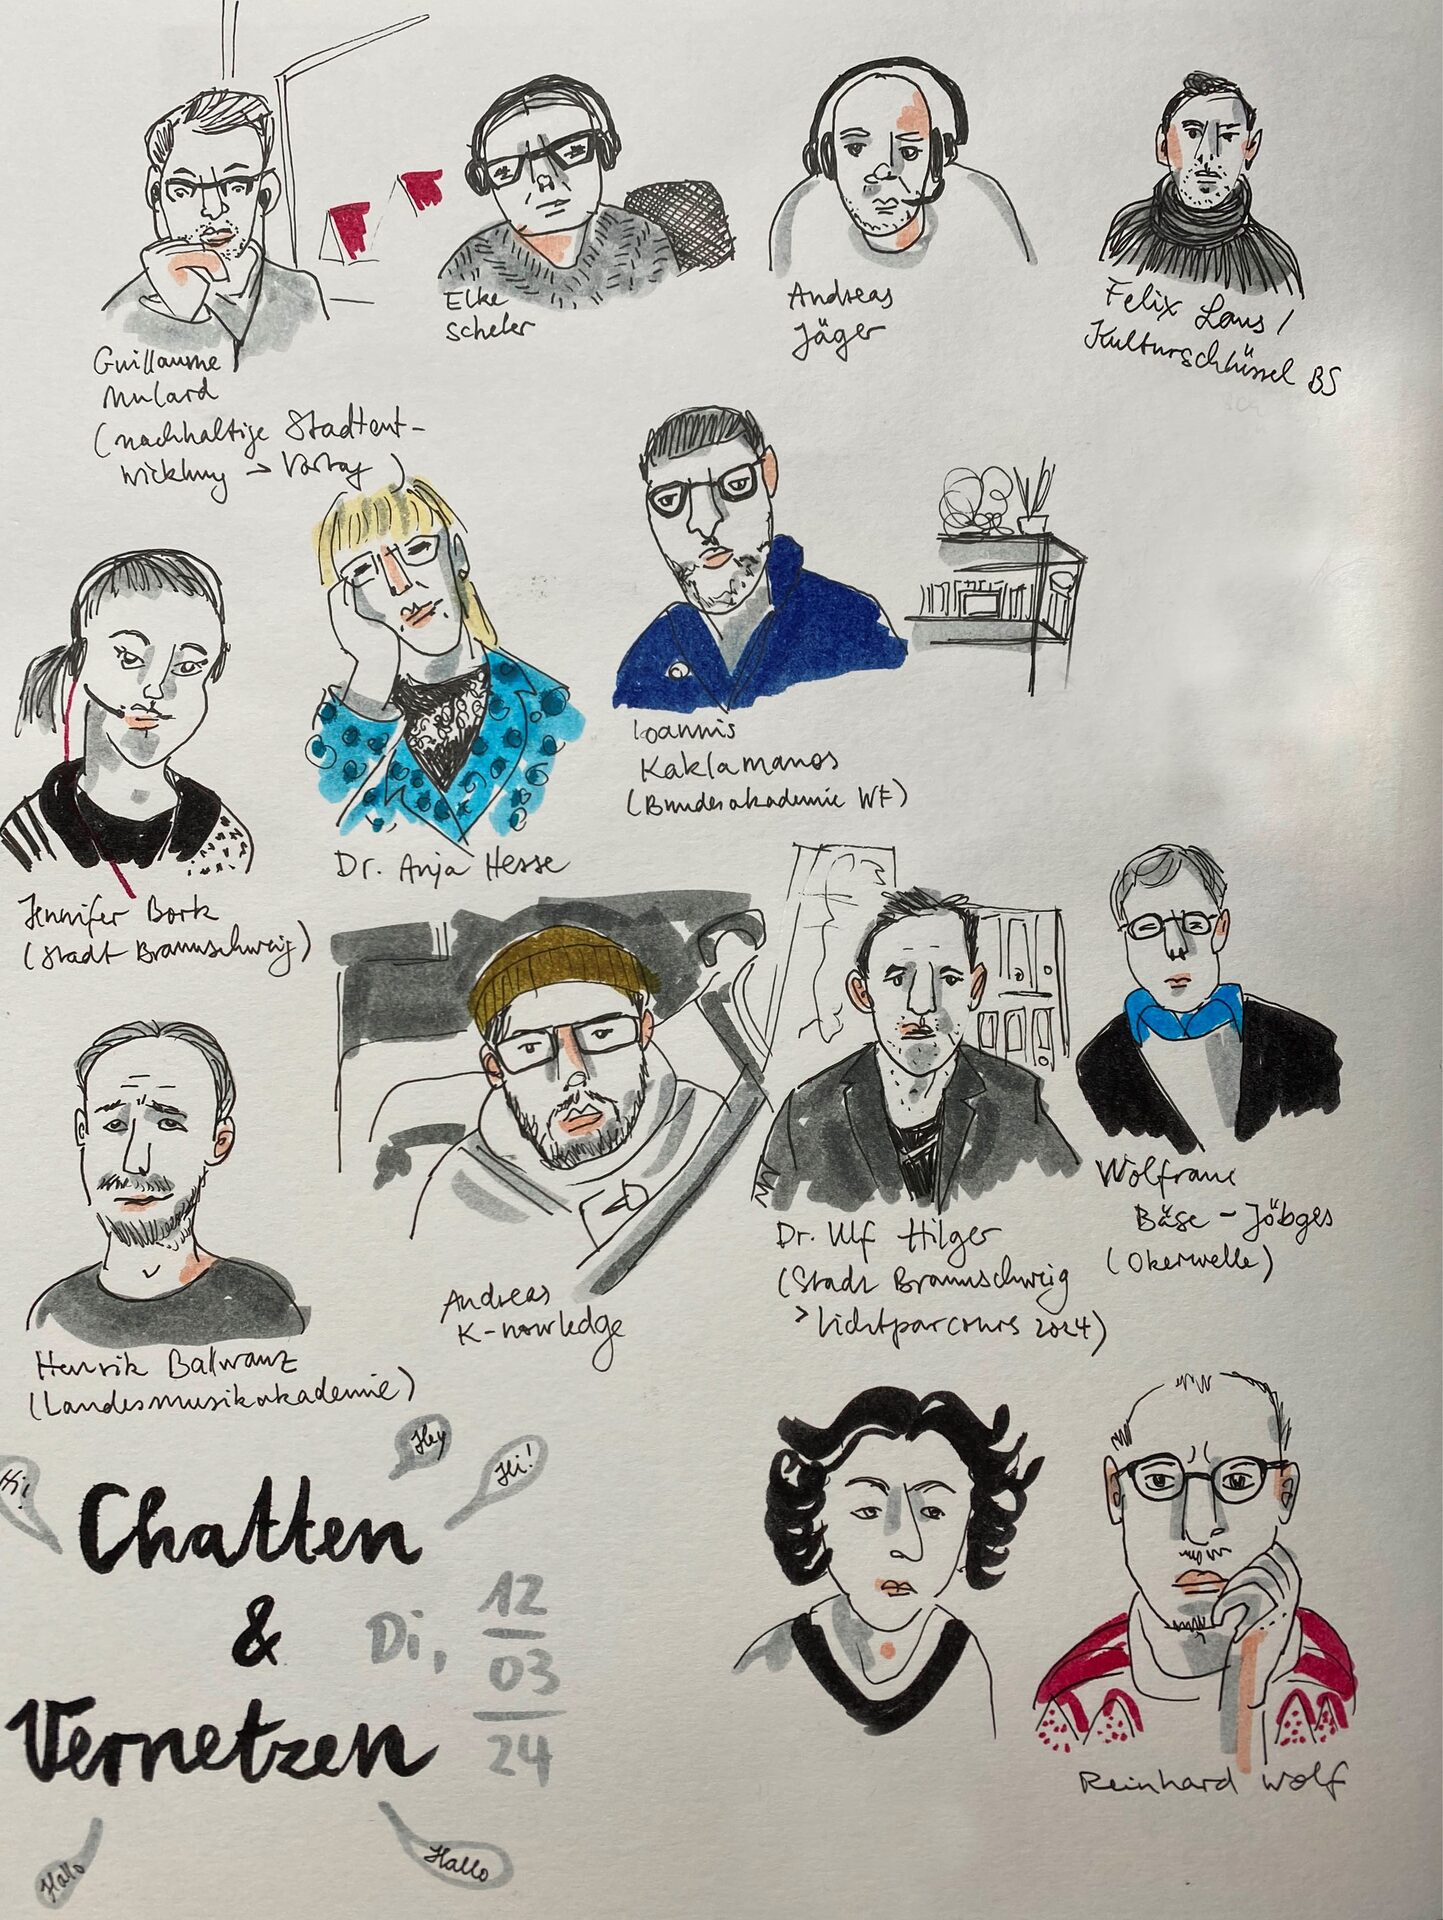 Guillaume
Mulard
(nachhaltige Stadtent-
wicklung → Vortrag)
Elke
Scheler
Andreas
Jäger
Felix Laus /
Kulturschlüssel BS
Jennifer Bork
(Stadt Braunschweig)
Dr. Anja Hesse
Ioannis
Kaklamanos
(Bundesakademie WF)
Henrik Balwanz
(Landesmusikakademie)
Andreas
K-nowledge
Dr. Ulf Hilger
(Stadt Braunschweig
> Lichtparcours 2024)
Wolfram
Bäse-Jöbges
(Okerwelle)
Hey
Hi!
Hi
Chatten
&
Vernetzen
Di, 12
03
24
Hallo
Hallo
Reinhard Wolf